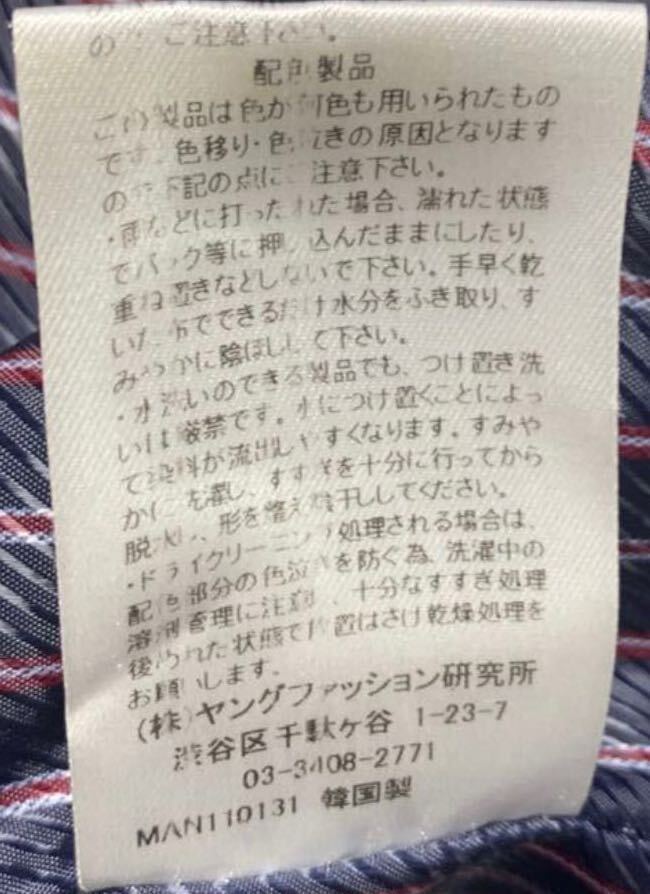 の ご注意下さい。
配色製品
この製品は色が何色も用いられたもの
です。色移り・色泣きの原因となります
の で下記の点にご注意下さい。
・雨などに打たれた場合、濡れた状態
でバック等に押し込んだままにしたり、
重ね置きなどしないで下さい。手早く乾
いた布でできるだけ水分をふき取り、す
みやかに陰ほしして下さい。
・水洗いのできる製品でも、つけ置き洗
いは厳禁です。水につけ置くことによっ
て染料が流出しやすくなります。すみや
かに洗濯し、すすぎを十分に行ってから
脱水し、形を整え陰干ししてください。
・ドライクリーニング処理される場合は、
配色部分の色泣きを防ぐ為、洗濯中の
溶剤管理に注意し、十分なすすぎ処理
後 られた状態で 置はさけ乾燥処理を
お願いします。
(株)ヤングファッション研究所
渋谷区千駄ケ谷 1-23-7
03-3408-2771
MAN110131 韓国製